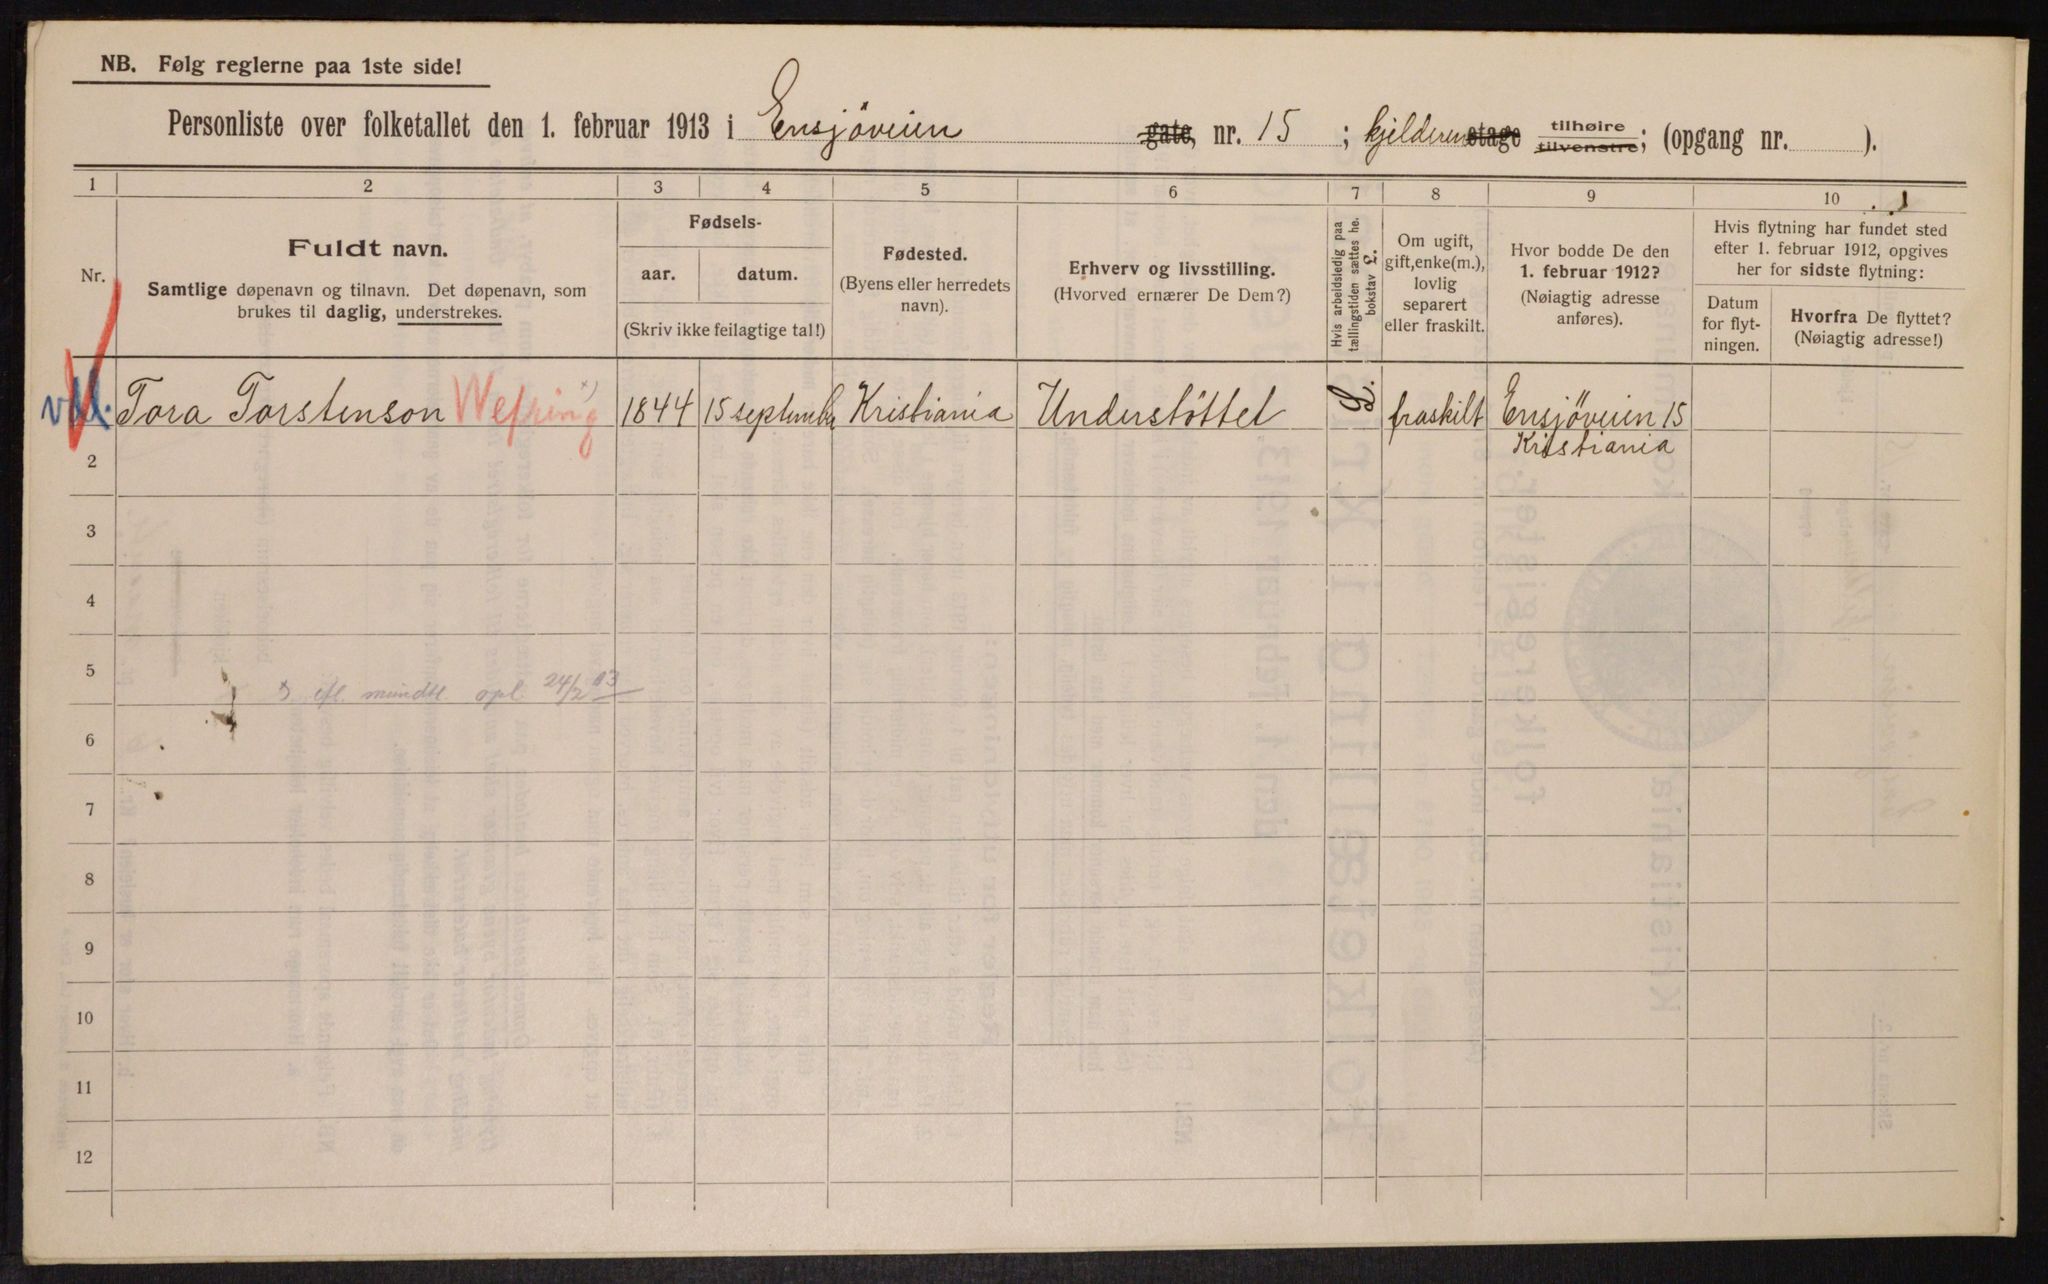 NB. Følg reglerne paa 1ste side!
Personliste over folketallet den 1. februar 1913 i Ensjöveien gate, nr. 15 ; kjelderen etage tilhøire tilvenstre; (opgang nr. ).
1 2 3 4 5 6 7 8 9 10
Nr.
Fuldt navn.
Samtlige døpenavn og tilnavn. Det døpenavn, som
brukes til daglig, understrekes.
Fødsels-
aar. datum.
(Skriv ikke feilagtige tal!)
Fødested.
(Byens eller herredets
navn).
Erhverv og livsstilling.
(Hvorved ernærer De Dem?)
Hvis arbeidsledig paa
tællingstiden sættes he.
bokstav L.
Om ugift,
gift, enke(m.),
lovlig
separert
eller fraskilt.
Hvor bodde De den
1. februar 1912?
(Nøiagtig adresse
anføres).
Hvis flytning har fundet sted
efter 1. februar 1912, opgives
her for sidste flytning:
Datum
for flyt-
ningen.
Hvorfra De flyttet?
(Nøiagtig adresse!)
Tora Torstenson Wefring x) 1844 15 september Kristiania Understöttet L. fraskilt Ensjöveien 15
Kristiania
2
3
4
5
efl. mundtl opl 24/2 13
6
7
8
9
10
11
12